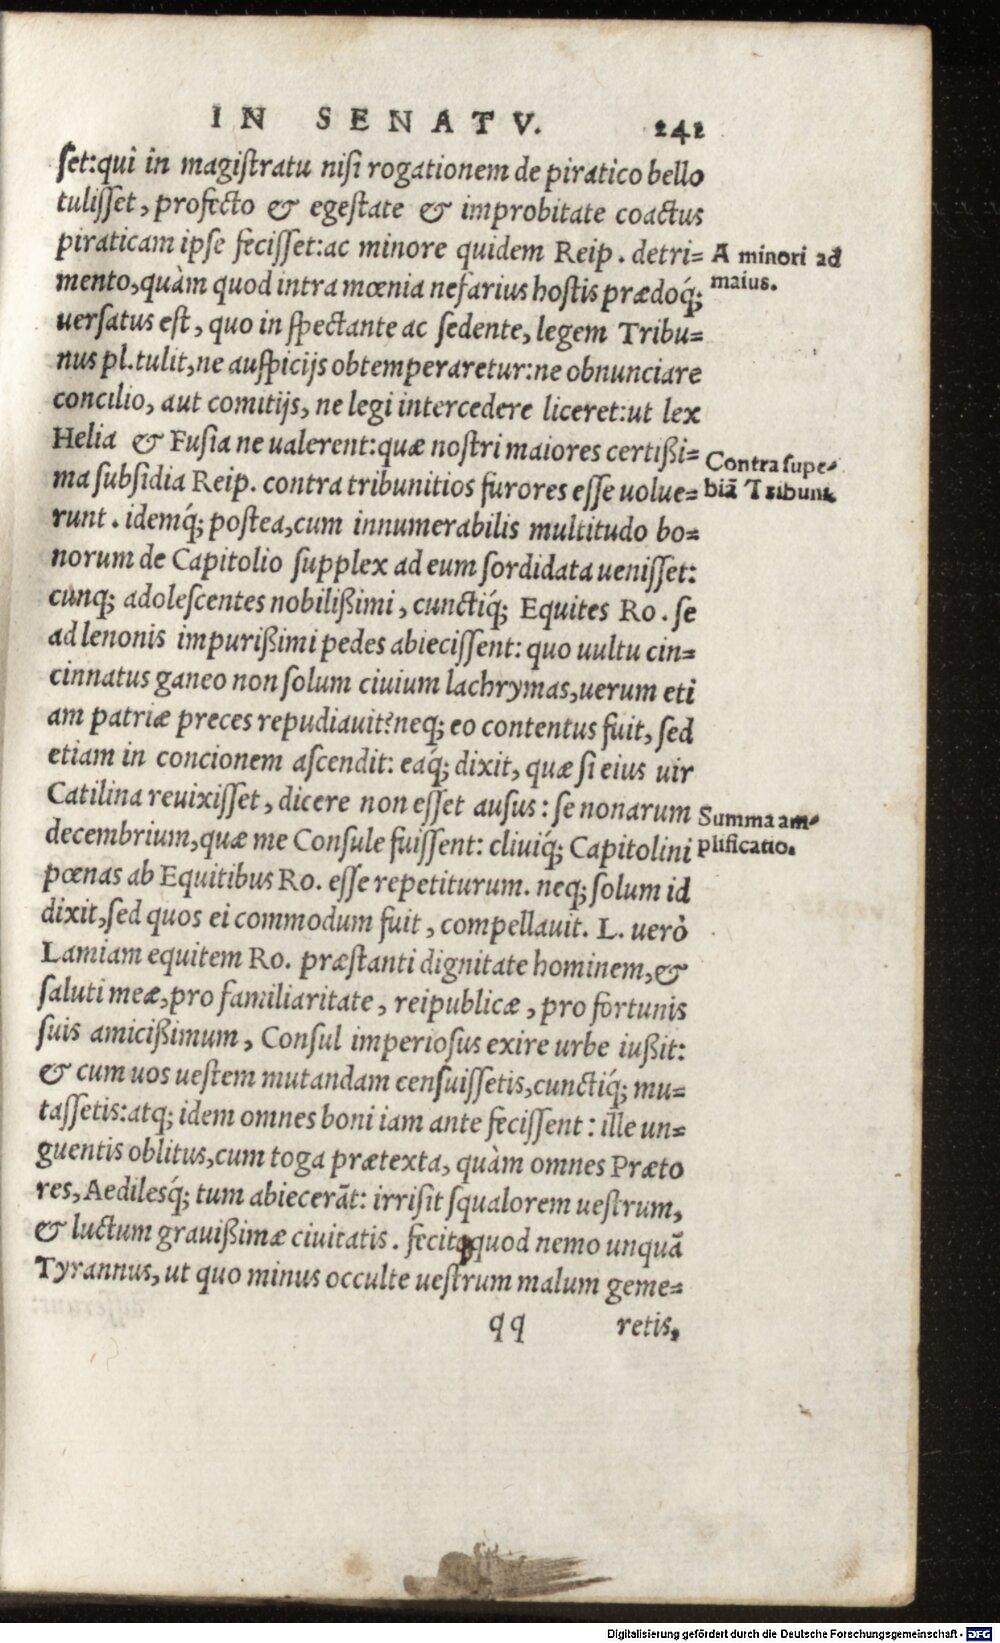 IN SENATV. 242
ſet:qui in magiſtratu niſi rogationem de piratico bello
tuliſſet, profecto & egeſtate & improbitate coactus
piraticam ipſe feciſſet:ac minore quidem Reip. detri=
A minori ad
maius.
mento,quàm quod intra mœnia nefarius hoſtis prædoq́;
uerſatus eſt, quo in ſpectante ac ſedente, legem Tribu=
nus pl.tulit,ne auſpicijs obtemperaretur:ne obnunciare
concilio, aut comitijs, ne legi intercedere liceret:ut lex
Helia & Fuſia ne ualerent:quæ noſtri maiores certißi=
Contra ſupe=
biã Tribuni.
ma ſubſidia Reip. contra tribunitios furores eſſe uolue=
runt. idemq́; poſtea,cum innumerabilis multitudo bo=
norum de Capitolio ſupplex ad eum ſordidata ueniſſet:
cunq; adoleſcentes nobilißimi, cunctiq́; Equites Ro. ſe
ad lenonis impurißimi pedes abieciſſent: quo uultu cin=
cinnatus ganeo non ſolum ciuium lachrymas,uerum eti
am patriæ preces repudiauit?neq; eo contentus fuit, ſed
etiam in concionem aſcendit: eaq́; dixit, quæ ſi eius uir
Catilina reuixiſſet, dicere non eſſet auſus: ſe nonarum
Summa am=
plificatio.
decembrium,quæ me Conſule fuiſſent: cliuiq́; Capitolini
pœnas ab Equitibus Ro. eſſe repetiturum. neq; ſolum id
dixit,ſed quos ei commodum fuit, compellauit. L. uerò
Lamiam equitem Ro. præſtanti dignitate hominem,&
ſaluti meæ,pro familiaritate, reipublicæ, pro fortunis
ſuis amicißimum, Conſul imperioſus exire urbe iußit:
& cum uos ueſtem mutandam cenſuiſſetis,cunctiq́; mu=
taſſetis:atq; idem omnes boni iam ante feciſſent: ille un=
guentis oblitus,cum toga prætexta, quàm omnes Præto
res, Aedilesq́; tum abiecerãt: irriſit ſqualorem ueſtrum,
& luctum grauißimæ ciuitatis. fecitq; quod nemo unquã
Tyrannus, ut quo minus occulte ueſtrum malum geme=
qq retis,
Digitalisierung gefördert durch die Deutsche Forschungsgemeinschaft - DFG